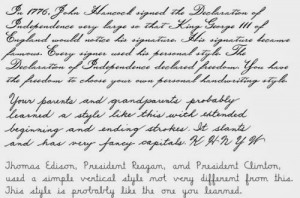 In 1776, John Hancock signed the Declaration of
Independence very large so that King George III of
England would notice his signature. His signature became
famous. Every signer used his personal style. The
Declaration of Independence declared freedom. You have
the freedom to choose your own personal handwriting style.
Your parents and grandparents probably
learned a style like this with extended
beginning and ending strokes. It slants
and has very fancy capitals K H N Y W
Thomas Edison, President Reagan, and President Clinton,
used a simple vertical style not very different from this.
This style is probably like the one you learned.